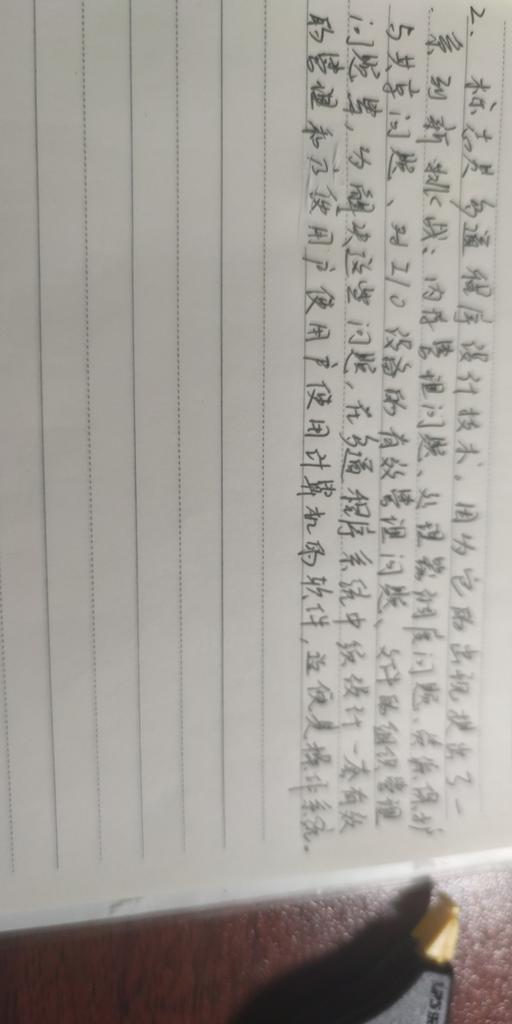 2. 标志是多道程序设计技术。因为它的出现提出了一
系列新挑战：内存管理问题、处理器调度问题、资源保护
与共享问题、对I/O设备的有效管理问题、文件的组织管理
问题等，为解决这些问题，在多道程序系统中须设计一套有效
的管理和方便用户使用户使用计算机的软件，这便是操作系统。